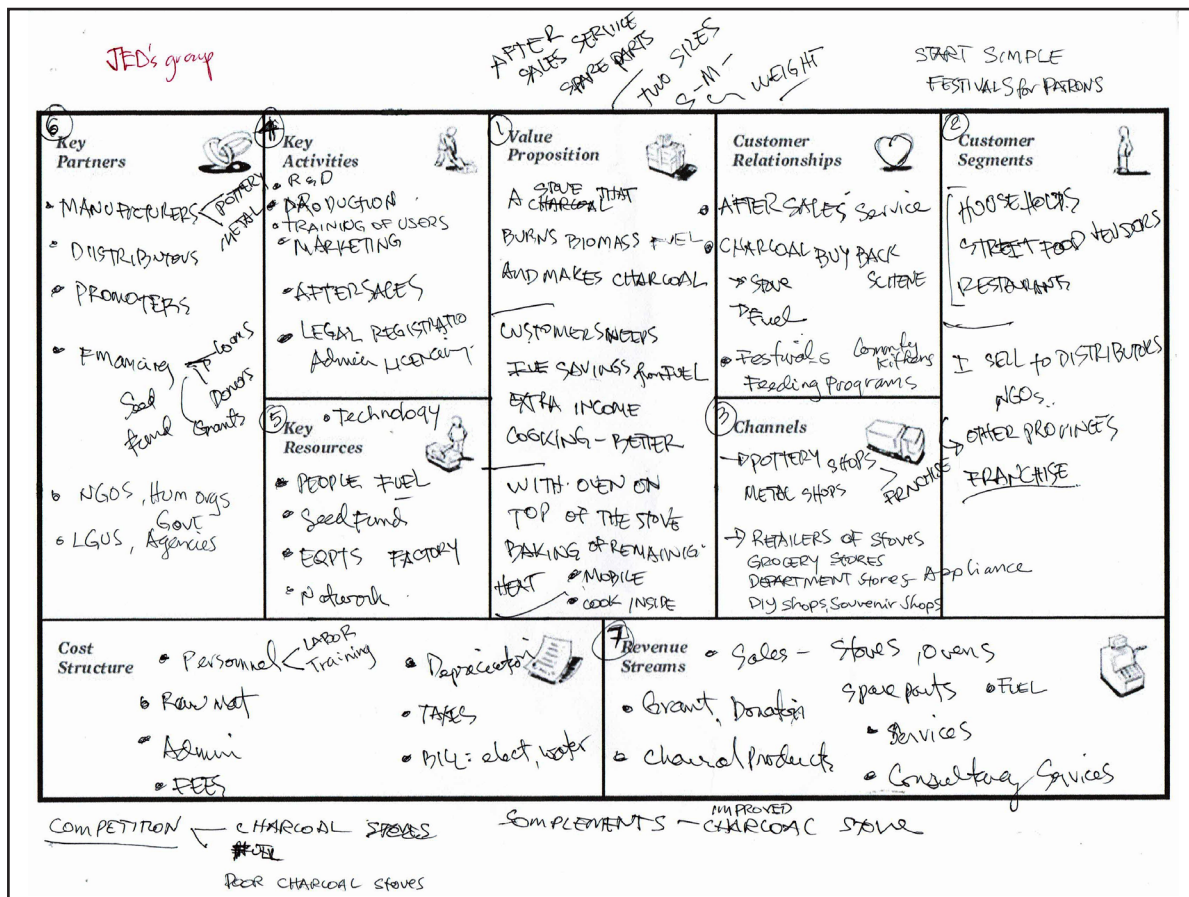 JED's group
AFTER
SALES SERVICE
SPARE PARTS
TWO SIZES
S-M-
WEIGHT
START SIMPLE
FESTIVALS for PATRONS
6
Key
Partners
• MANUFACTURERS
POTTERY
METAL
• DISTRIBUTORS
• PROMOTERS
• Financing
Loans
Donors
Grants
Seed
fund
• NGOS, Hum orgs
Govt
• LGUS, Agencies
4
Key
Activities
• R&D
• PRODUCTION
• TRAINING OF USERS
• MARKETING
• AFTERSALES
• LEGAL REGISTRATIO
Admin LICENCING.
5
Key
Resources
• Technology
• PEOPLE FUEL
• Seed Fund
• EQPTS FACTORY
• Network
1
Value
Proposition
A STOVE THAT
BURNS BIOMASS FUEL
AND MAKES CHARCOAL
CUSTOMERS NEEDS
SAVINGS from FUEL
EXTRA INCOME
COOKING - BETTER
WITH OVEN ON
TOP OF THE STOVE
BAKING OF REMAINIG
HEAT
• MOBILE
• COOK INSIDE
Customer
Relationships
• AFTER SALES Service
• CHARCOAL BUY BACK
SCHEME
→ Stove
→ Fuel
• Festivals Community
Kitchens
Feeding Programs
3
Channels
→ POTTERY SHOPS
METAL SHOPS
FRNCHISE
→ RETAILERS OF STOVES
GROCERY STORES
DEPARTMENT Stores - Appliance
DIY shops, Souvenir Shops
2
Customer
Segments
HOUSEHOLDS
STREET FOOD VENDORS
RESTAURANTS
I SELL to DISTRIBUTORS
NGOs..
OTHER PROVINCES
FRANCHISE
Cost
Structure
• Personnel
LABOR
Training
• Raw mat
• Admin
• FEES
• Depreciation
• TAXES
• BILL: elect, water
7
Revenue
Streams
• Sales - Stoves, Ovens
Spare parts • FUEL
• Grant, Donation
• Services
• Charcoal Products
• Consultancy Services
COMPETITION
CHARCOAL STOVES
FUEL
POOR CHARCOAL STOVES
COMPLEMENTS - IMPROVED
CHARCOAL STOVE